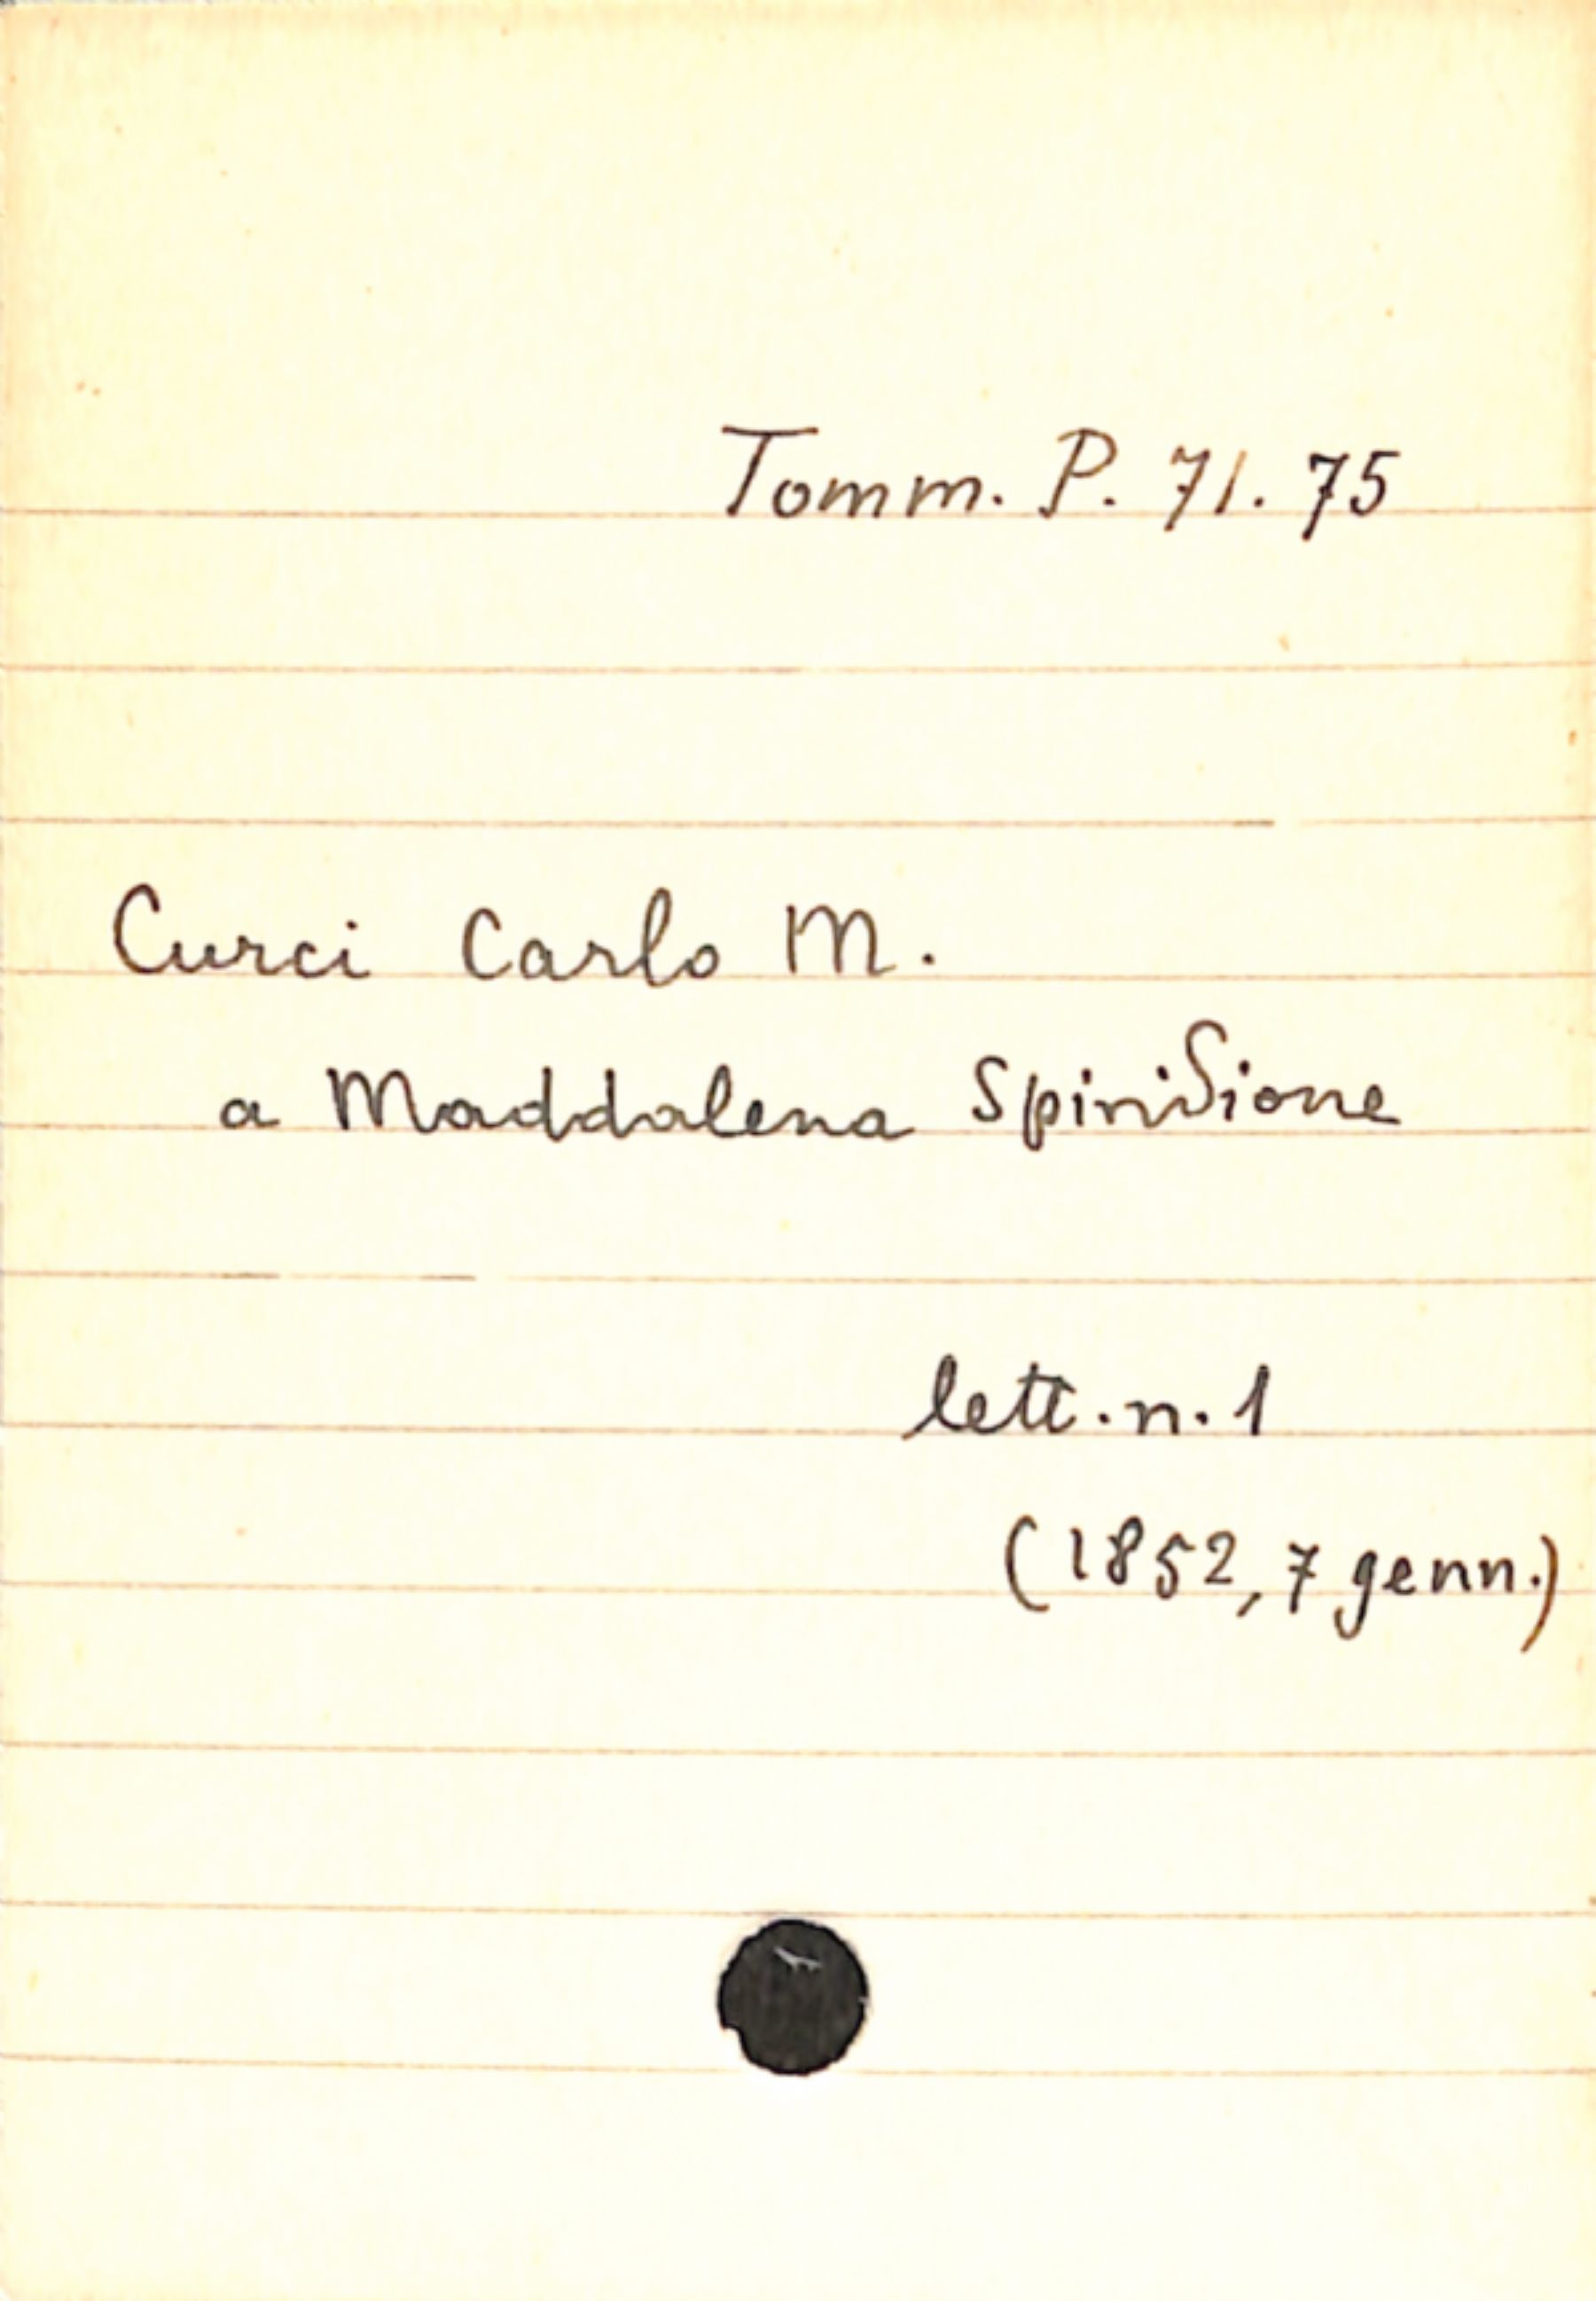 Tomm. P. 71. 75
Curci Carlo M.
a Maddalena Spiridione
lett. n. 1
(1852, 7 genn.)